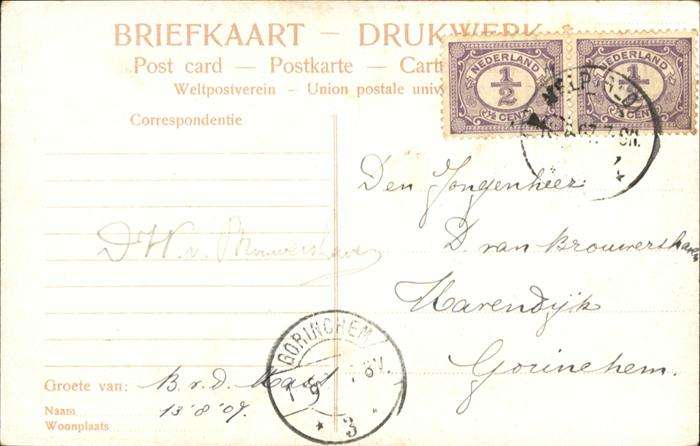 BRIEFKAART — DRUKWERK
Post card — Postkarte — Cart
Weltpostverein — Union postale univ
NEDERLAND
1/2
½ CENT
NEDERLAND
1/2
½ CENT
Correspondentie
Den Jongenheer
D. van Brouwershaven
Havendijk
Gorinchem.
D. W. v. Brouwershaven
GORINCHEM
8V.
3
Groete van: B. v. d. Maas
13 '8 '07.
Naam
Woonplaats